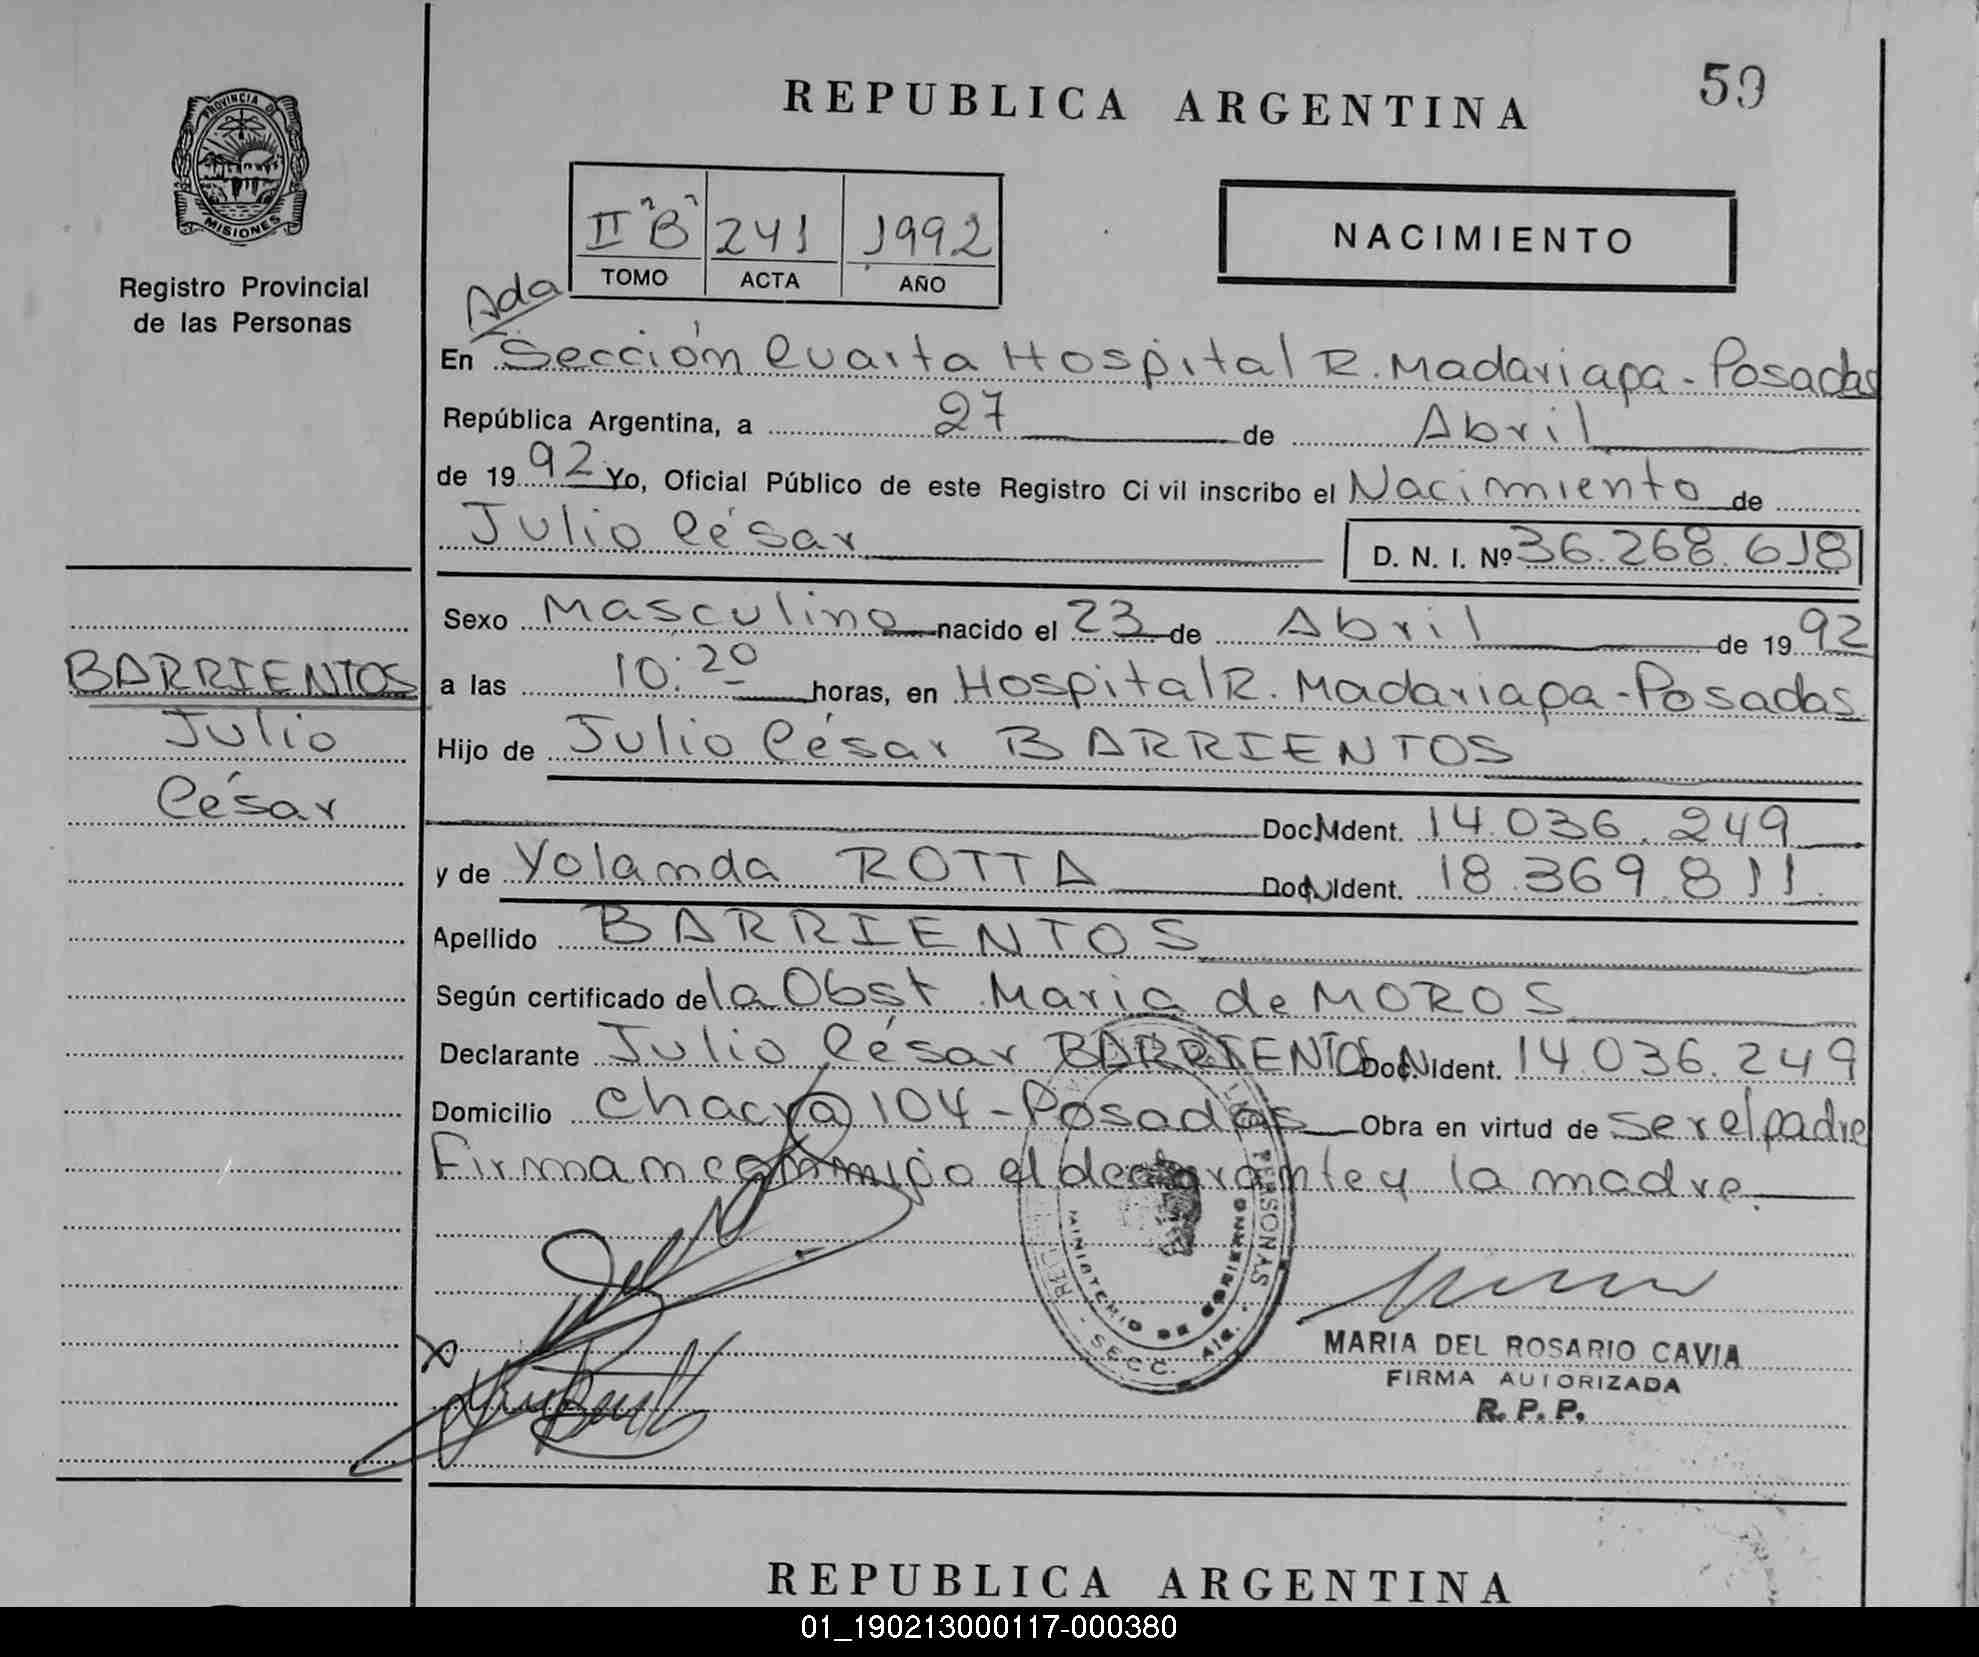 REPUBLICA ARGENTINA
59
PROVINCIA DE
MISIONES
Registro Provincial
de las Personas
II "B" 241 1992
TOMO ACTA AÑO
NACIMIENTO
Ada
En Sección Cuarta Hospital R. Madariaga - Posadas
República Argentina, a 27 de Abril
de 1992 Yo, Oficial Público de este Registro Civil inscribo el Nacimiento de
Julio César D. N. I. Nº 36.268.618
Sexo Masculino nacido el 23 de Abril de 1992
BARRIENTOS
Julio
César
a las 10:20 horas, en Hospital R. Madariaga - Posadas
Hijo de Julio César BARRIENTOS
Doc. N Ident. 14.036.249
y de Yolanda ROTTA Doc. N Ident. 18.369.811
Apellido BARRIENTOS
Según certificado de la Obst Maria de MOROS
Declarante Julio César BARRIENTOS Doc. N Ident. 14.036.249
Domicilio chacra 104 - Posadas Obra en virtud de ser el padre
Firman conmigo el declarante y la madre.
PERSONAS
MINISTERIO DE GOBIERNO
SECC.
MARIA DEL ROSARIO CAVIA
FIRMA AUTORIZADA
R. P. P.
REPUBLICA ARGENTINA
01_190213000117-000380